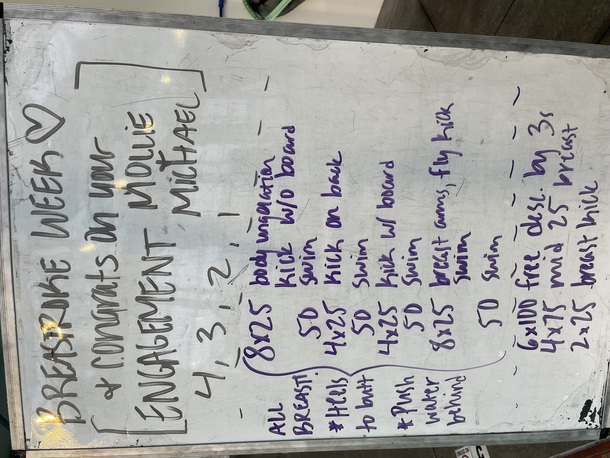 BREASTROKE WEEK ♡
& congrats on your
[ENGAGEMENT MOLLIE
MICHAEL]
4, 3, 2, 1
ALL
BREAST!
* Heels
to butt
* Push
water
behind
8x25 body undulation
kick w/o board
50 swim
4x25 kick on back
50 swim
4x25 kick w/ board
50 swim
8x25 breast arms, fly kick
swim
50 swim
6x100 free desc. by 3s
4x75 mid 25 breast
2x25 breast kick